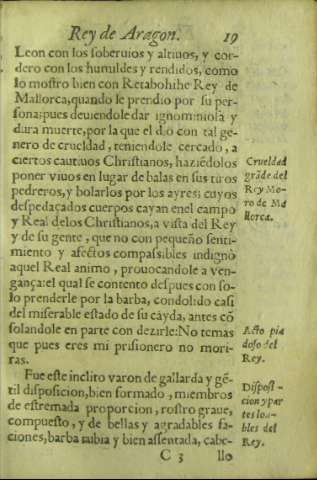 Rey de Aragon. 19
Leon con los soberuios y altiuos, y cor-
dero con los humildes y rendidos, como
lo mostro bien con Retabohihe Rey de
Mallorca, quando le prendio por su per-
sona; pues deuiendole dar ignominiosa y
dura muerte, por la que el dio con tal ge-
nero de crueldad, teniendole cercado, a
ciertos cautiuos Christianos, haziēdolos
poner viuos en lugar de balas en sus tiros
pedreros, y bolarlos por los ayres: cuyos
despedaçados cuerpos cayan en el campo
y Real de los Christianos, a vista del Rey
y de su gente, que no con pequeño senti-
miento y afectos compassibles indignò
aquel Real animo, prouocandole a ven-
gança: el qual se contento despues con so-
lo prenderle por la barba, condolido casi
del miserable estado de su cayda, antes cō
solandole en parte con dezirle: No temas
que pues eres mi prisionero no mori-
ras.
Fue este inclito varon de gallarda y gē-
til disposicion, bien formado, miembros
de estremada proporcion, rostro graue,
compuesto, y de bellas y agradables fa-
ciones, barba rubia y bien assentada, cabe-
C 3 llo
Crueldad
grāde del
Rey Mo-
ro de Ma
llorca.
Acto pia
doso del
Rey.
Disposi-
cion y par
tes loa-
bles del
Rey.